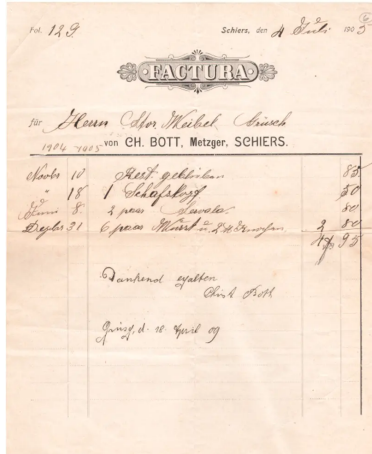 Fol. 129. Schiers, den 4 Juli 1905
FACTURA
für Herrn Weibel Grüsch
1904 1905 von CH. BOTT, Metzger, SCHIERS.
Novbr 10 Rest geblieben 85
" 18 1 Schafskopf 50
Juni 8. 2 paar Servela. 80
31 6 paar Würst u. 2 80
95
Dankend erhalten
Christ Bott
Grüsch, d. 10. April 09